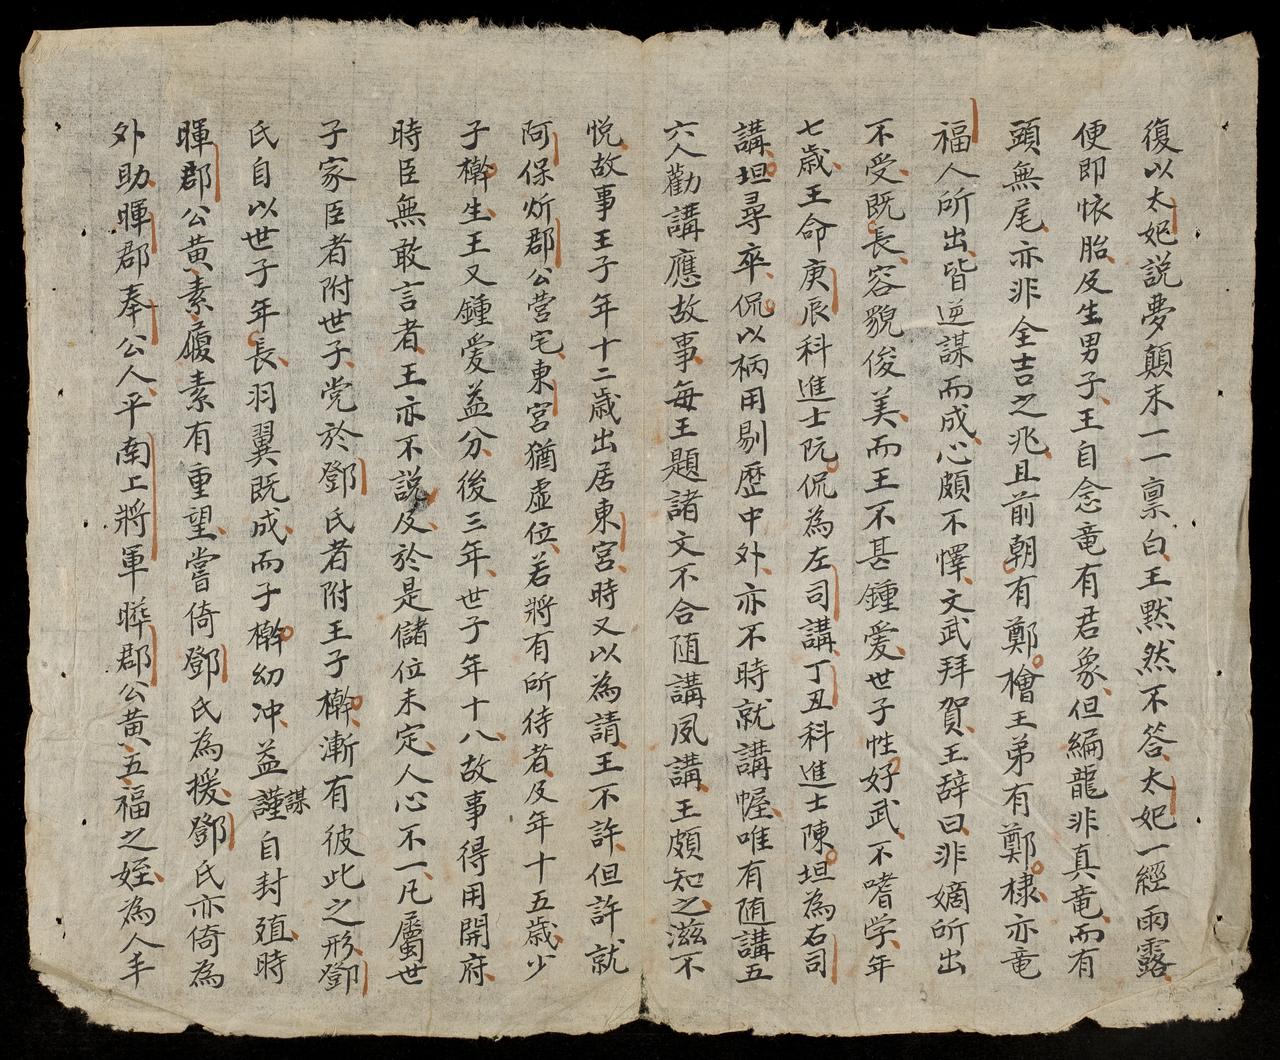 復以太妃説夢顛末一一禀白王默然不答太妃一經雨露
便即恠胎及生男子王自念竜有君象但編龍非真竜而有
頭無尾亦非全吉之兆且前朝有鄭檜王弟有鄭棣亦竜
福人所出皆逆謀而成心頗不懌文武拜賀王辞曰非嫡所出
不受既長容貌俊美而王不甚鍾爱世子性好武不嗜学年
七歳王命庚辰科進士阮侃為左司講丁丑科進士陳坦為右司
講坦尋卒侃以柄用剔歴中外亦不時就講幄唯有随講五
六人勸講應故事每王題諸文不合随講夙講王頗知之滋不
悦故事王子年十二歳出居東宮時又以為請王不許但許就
阿保炘郡公营宅東宮猶虚位若將有所待者及年十五歳少
子檊生王又鍾爱益分後三年世子年十八故事得用開府
時臣無敢言者王亦不説及於是儲位未定人心不一凡屬世
子家臣者附世子党於鄧氏者附王子檊漸有彼此之形鄧
氏自以世子年長羽翼既成而子檊幼冲益謹謀自封殖時
暉郡公黄素履素有重望嘗倚鄧氏為援鄧氏亦倚為
外助暉郡奉公人平南上將軍曄郡公黄五福之姪為人丰